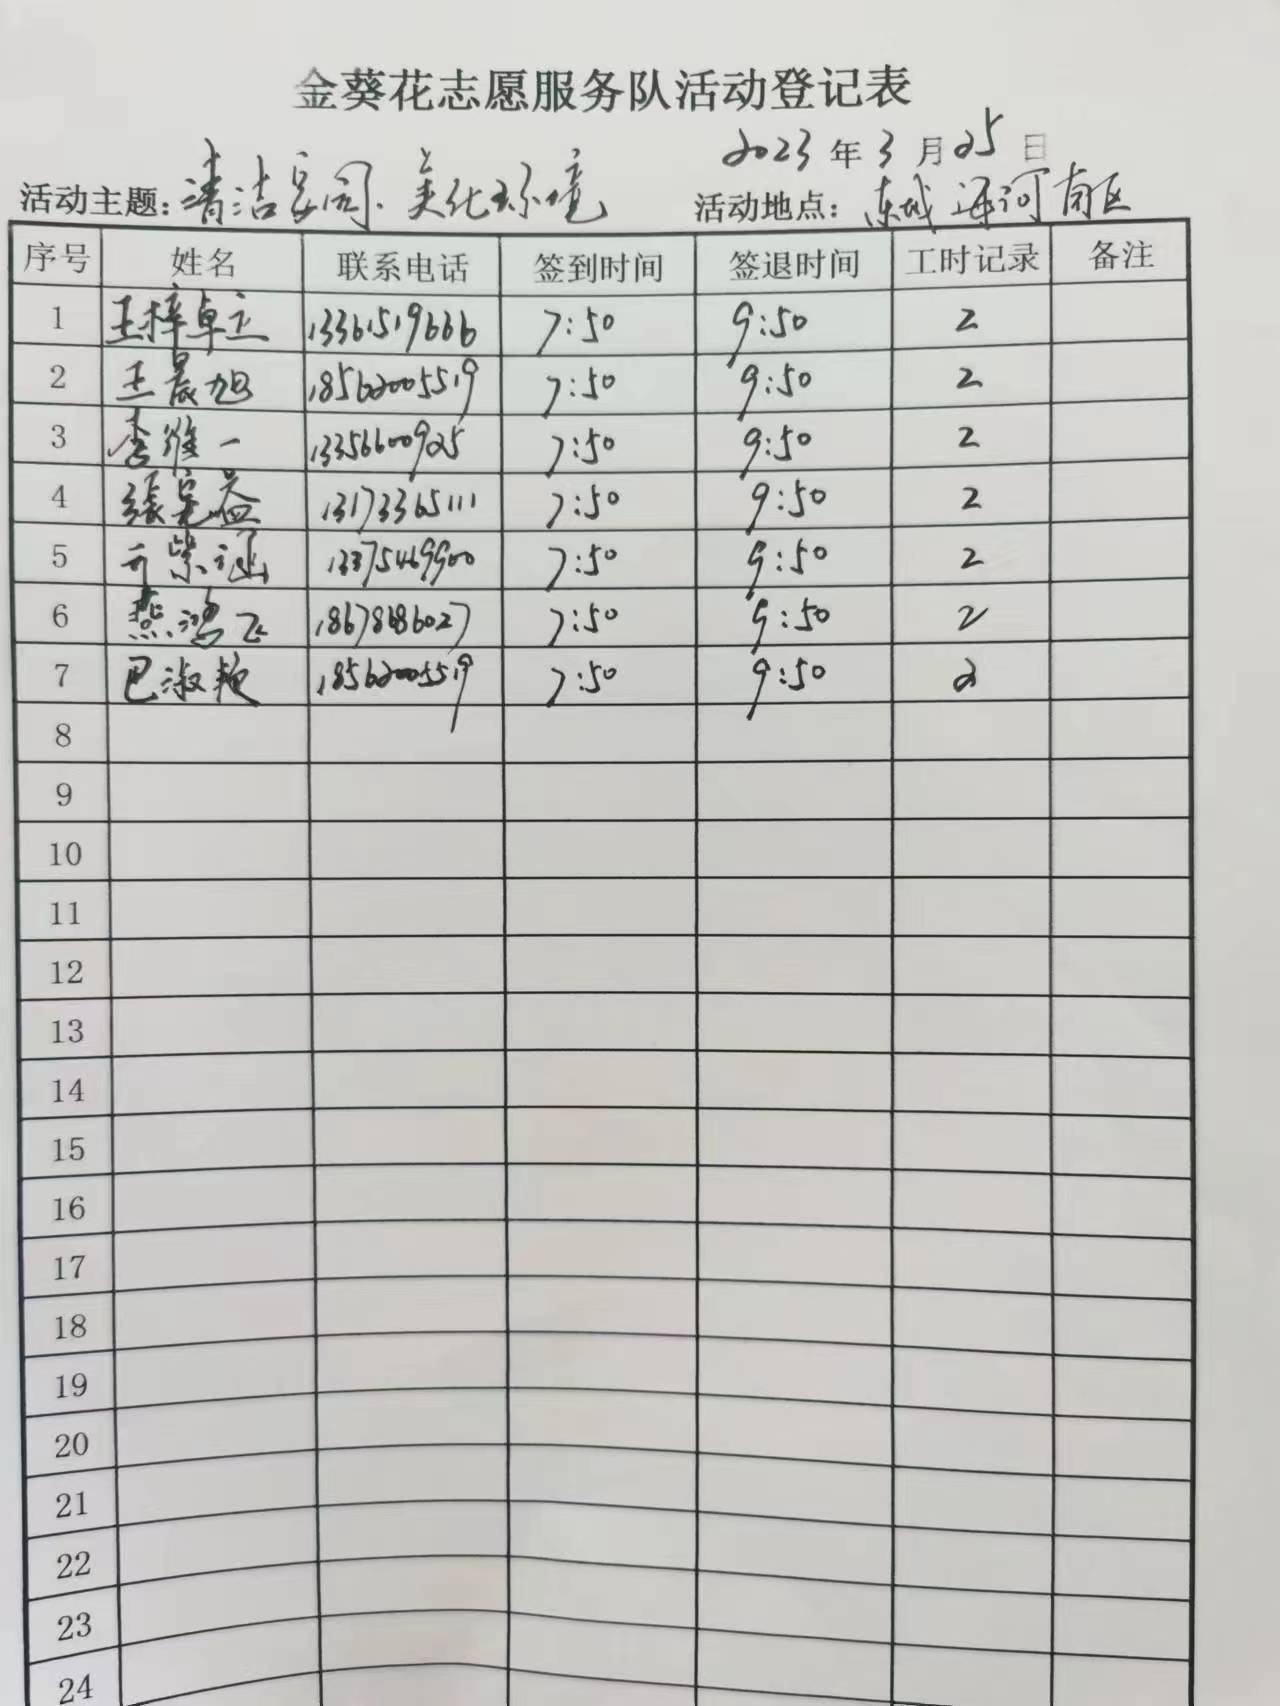 金葵花志愿服务队活动登记表
2023 年 3 月 25 日
活动主题：清洁家园.美化环境 活动地点：东城 河南区
序号 姓名 联系电话 签到时间 签退时间 工时记录 备注
1 王梓卓立 13361519666 7:50 9:50 2
2 王晨旭 18562005519 7:50 9:50 2
3 李维一 13356600925 7:50 9:50 2
4 张 益 13173365111 7:50 9:50 2
5 亓紫涵 13375469900 7:50 9:50 2
6 燕鸿飞 18678686027 7:50 9:50 2
7 巴淑艳 18562005519 7:50 9:50 2
8
9
10
11
12
13
14
15
16
17
18
19
20
21
22
23
24